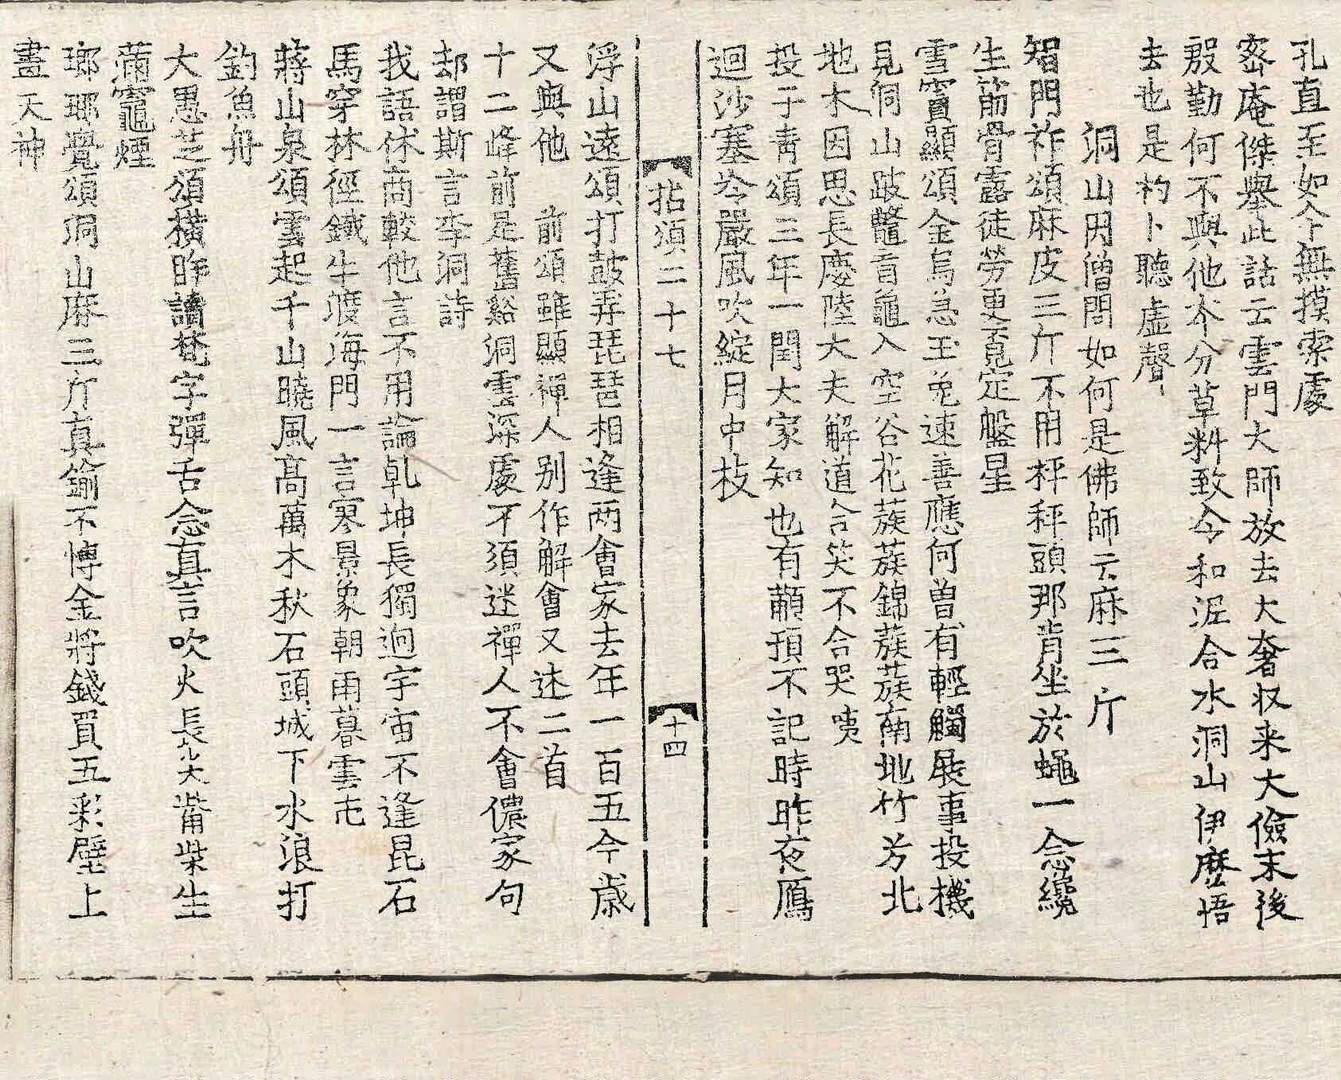 孔直至如今無摸索處
密庵傑舉此話云雲門大師放去大奢収来大儉末後
殷勤何不與他本分草料致令和泥合水洞山伊麽悟
去也是杓卜聽虛聲
洞山因僧問如何是佛師云麻三斤
智門祚頌麻皮三斤不用秤秤頭那肯坐於蠅一念纔
生筋骨露徒勞更覔定盤星
雪竇顯頌金烏急玉兔速善應何曾有輕觸展事投機
見洞山跛鼈盲龜入空谷花蔟蔟錦蔟蔟南地竹兮北
地木因思長慶陸大夫解道合笑不合哭咦
投子靑頌三年一閏大家知也有顢頇不記時昨夜鴈
迴沙塞冷嚴風吹綻月中枝
拈頌二十七
十四
浮山遠頌打皷弄琵琶相逢两會家去年一百五今歲
又與他 前頌雖顯禅人别作解會又述二首
十二峰前是舊谿洞雲深處不須迷禪人不會儂家句
却謂斯言李洞詩
我語休商較他言不用論乹坤長獨逈宇宙不逢昆石
馬穿林徑鐵牛渡海門一言寒景象朝雨暮雲屯
蔣山泉頌雲起千山曉風高萬木秋石頭城下水浪打
釣魚舟
大愚芝頌橫眸讀梵字彈舌念真言吹火長尖觜柴生
滿竈煙
瑯瑘覺頌洞山麻三斤真鍮不愽金將錢買五彩壁上
畫天神